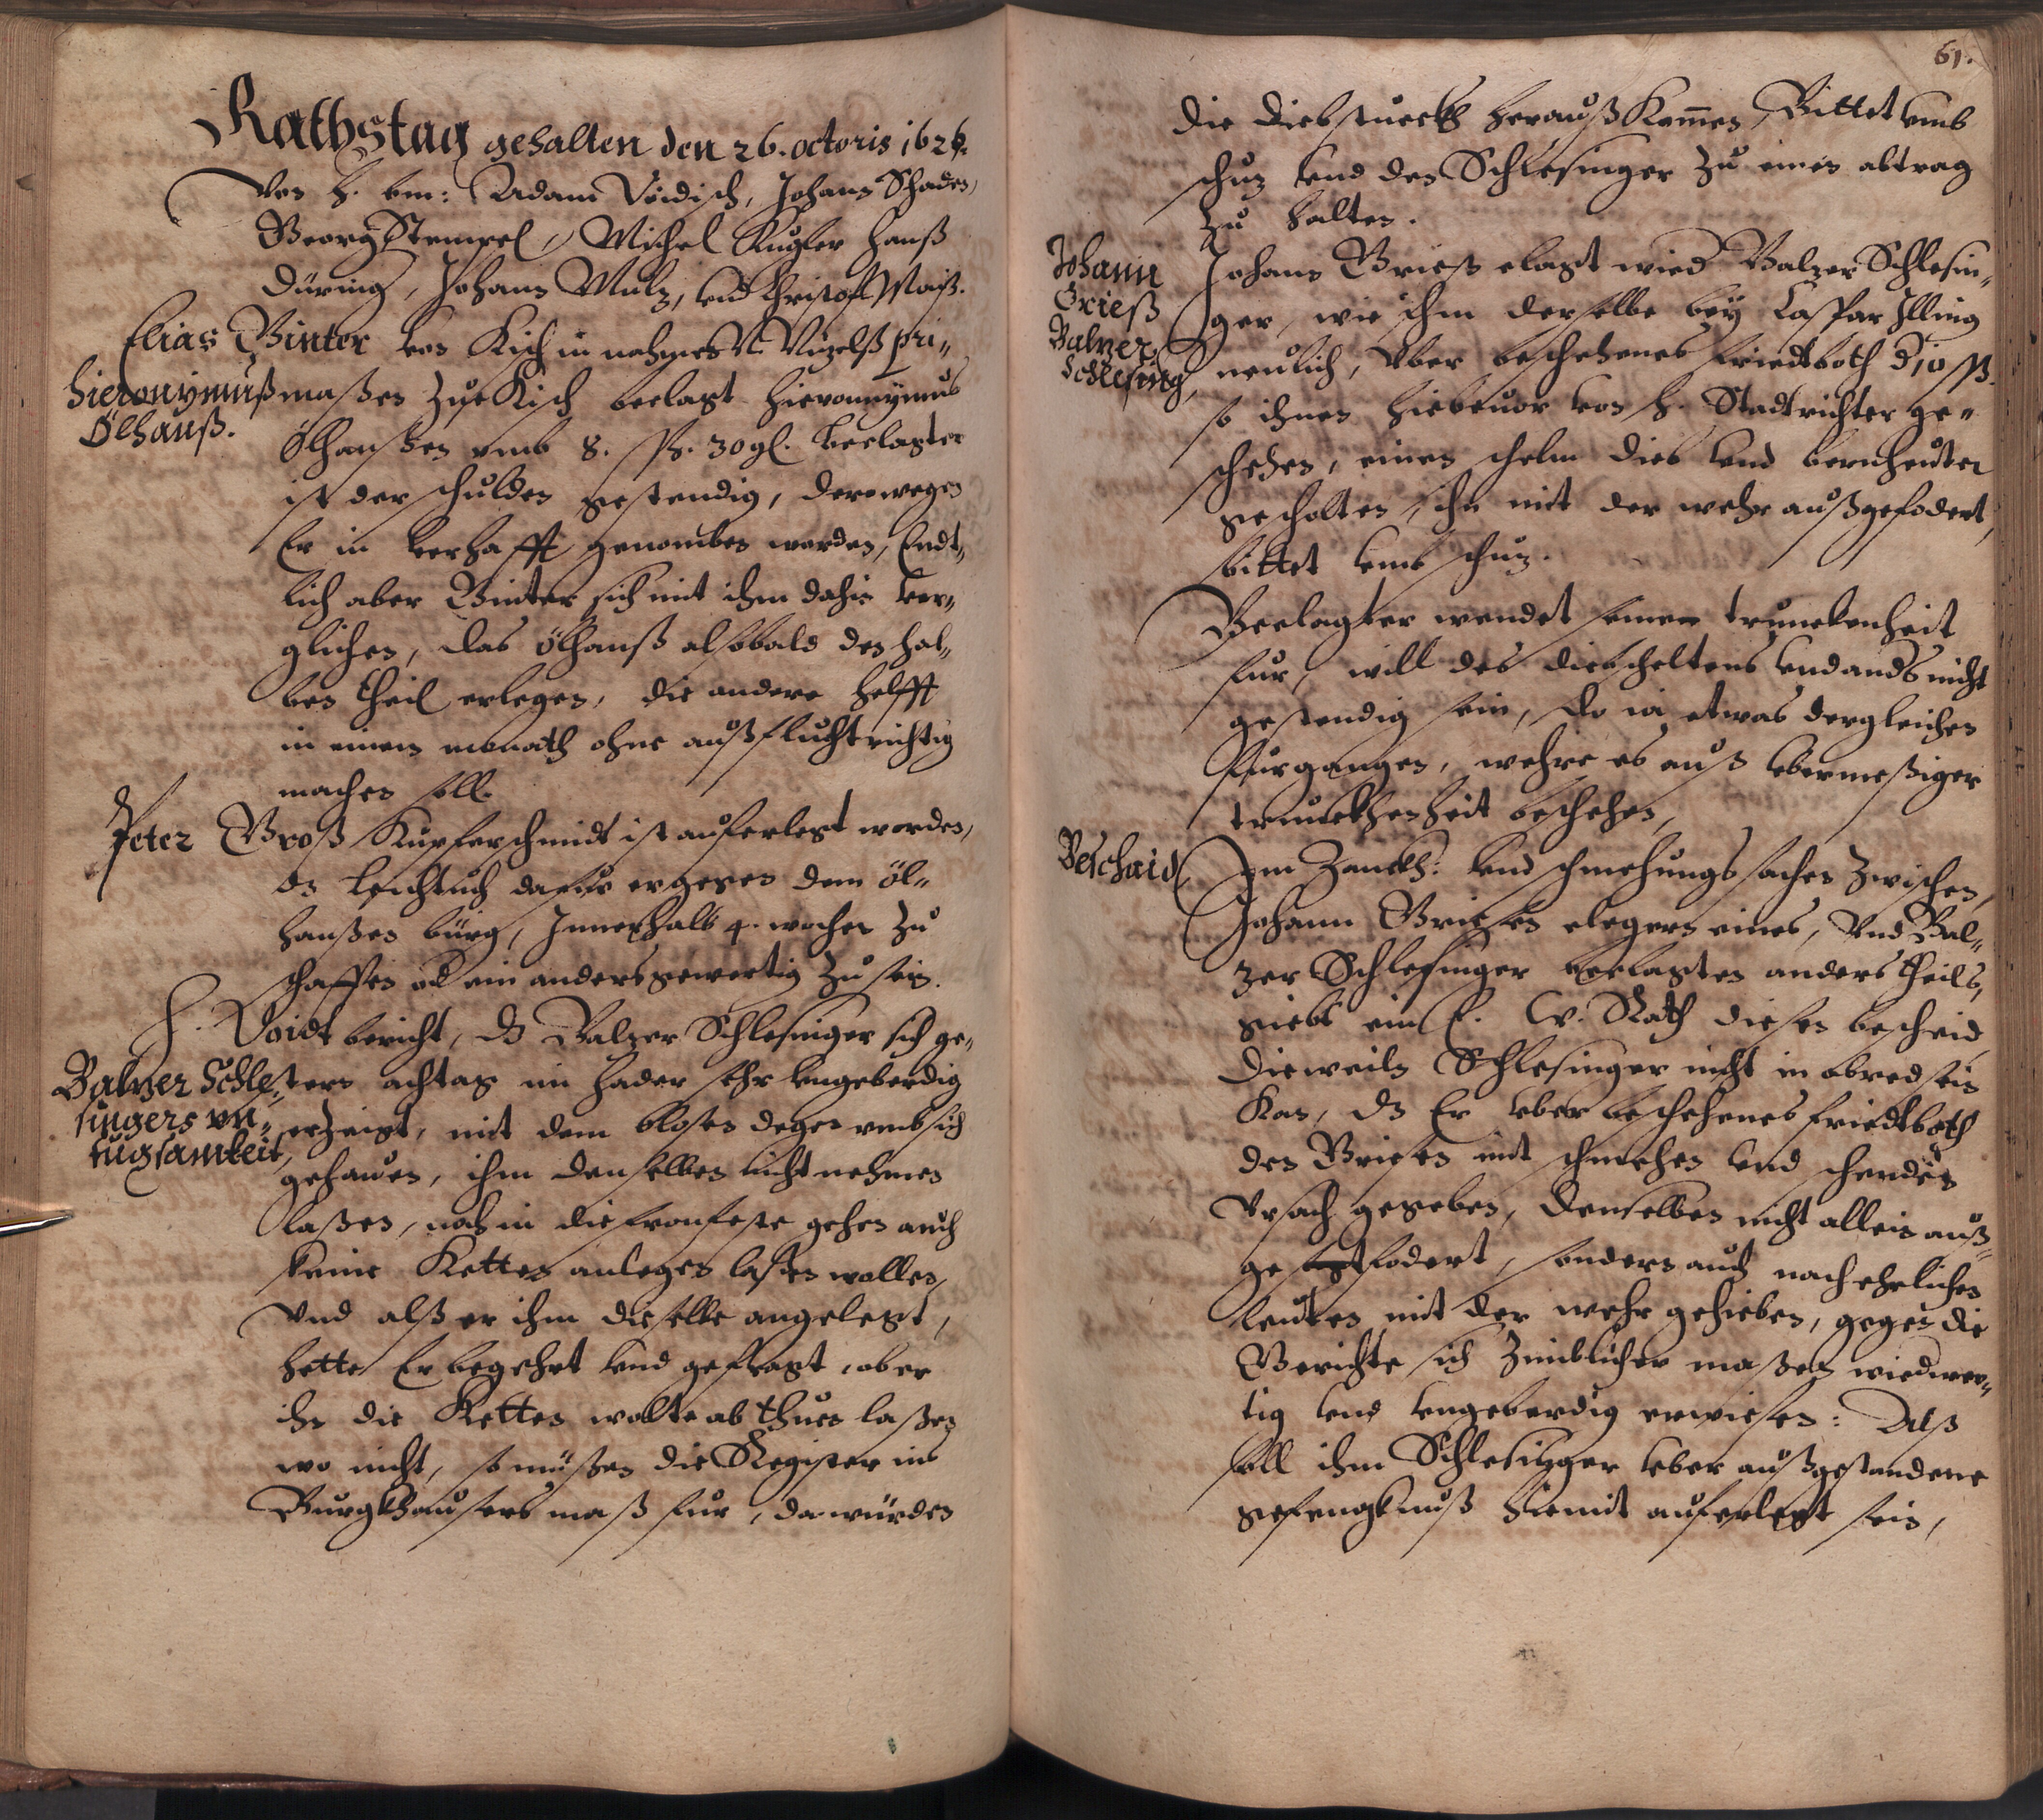 Rathstag gehalten den 26. octoris 1626.
Von H. bm: Adam Voidisch, Johann Schaden,
Georg Stempel, Michel Kugler Hanß
Düring, Johann Mulz, vnd Christoff Maiß.
Elias Winter von Kisch in nahmen N. Vizelß pri-
Hieronymuß
Ölhauß.
maßen zue Kisch beclagt Hieronnymus
Ölhansen vmb 8. ßß. 30 gl. beclagter
ist der schulden gestendig, derowegen
Er in verhafft genomben worden, Endt-
lich aber Winter sich mit ihm dahin ver-
glichen, das ölhanß alsobald den hal-
ben theil erlegen, die andere helfft
in einem monath ohne außflucht richtig
machen soll.
Peter Groß Kupferschmidt ist auferlegt worden,
dz leichtuch dafür er gegen dem öl-
hanßen bürg, Innerhalb 4. wochen zu
schaffen od ein anders gewertig zu sein.
H. Voidt bericht, dz Balzer Schlesinger sich ge-
Balzer Schle-
singers vn-
tugsamkeit,
stern achtag im hader sehr vngeberdig
erzeigt, mit dem blosen degen vmb sich
gehauen, ihm denselben nicht nehmen
laßen, noch in die fronfeste gehen auch
keine Ketten anlegen laßen wollen,
Vnd alß er ihm dieselbe angelegt,
hette Er begehrt vnd gefragt, ob er
ihn die Ketten wolte ab thuen laßen
wo nicht, so müßen die Register ins
Burgkhausers maß fur, da würden
61.
die diebstueckh herauß Kommen, Bittet vmb
schuz vnd den Schlesinger zu einen abtrag
zu halten.
Johann
Grieß
Balzer
Schlesing,
Johann Grieß clagt wied Balzer Schlesin-
ger, wie ihm derselbe bey Caspar Illing
neulich, vber beschehenes friedtboth d 10 ßß.
so ihnen hiebeuor von H. Stadtrichter ge-
schehen, einen schelm dieb vnd bernheuter
gescholten, ihn mit der wehr außgefodert,
bittet vmb schuz.
Beclagter wendet seinen trunckenheit
fur, will des diebscheltens vnd ands nicht
gestendig sein, do ia etwas dergleichen
furgangen, wehre es auß vbermeßiger
trunckhenheit beschehen,
Beschaid,
Inn Zanckh: vnd schmehungs sachen zwischen,
Johann Grießen clegern eines, Vnd Bal-
zer Schlesinger beclagten anders theils,
giebt ein E. W. Rath diesen bescheid
Dieweiln Schlesinger nicht in abred sein
Kan, dz Er vber beschehenes friedtboth
den Grießen mit schmehen vnd schenden
Vrsach gegeben, denselben nicht allein auß-
gefodert, sondern auch nach ehrlichen
leuten mit der wehr gehieben, gegen die
Gerichte sich zimblicher maßen wiederwer-
tig vnd vngeberdig erwiesen: Alß
soll ihm Schlesinger vber außgestandene
gefengknuß hiemit auferlegt sein,